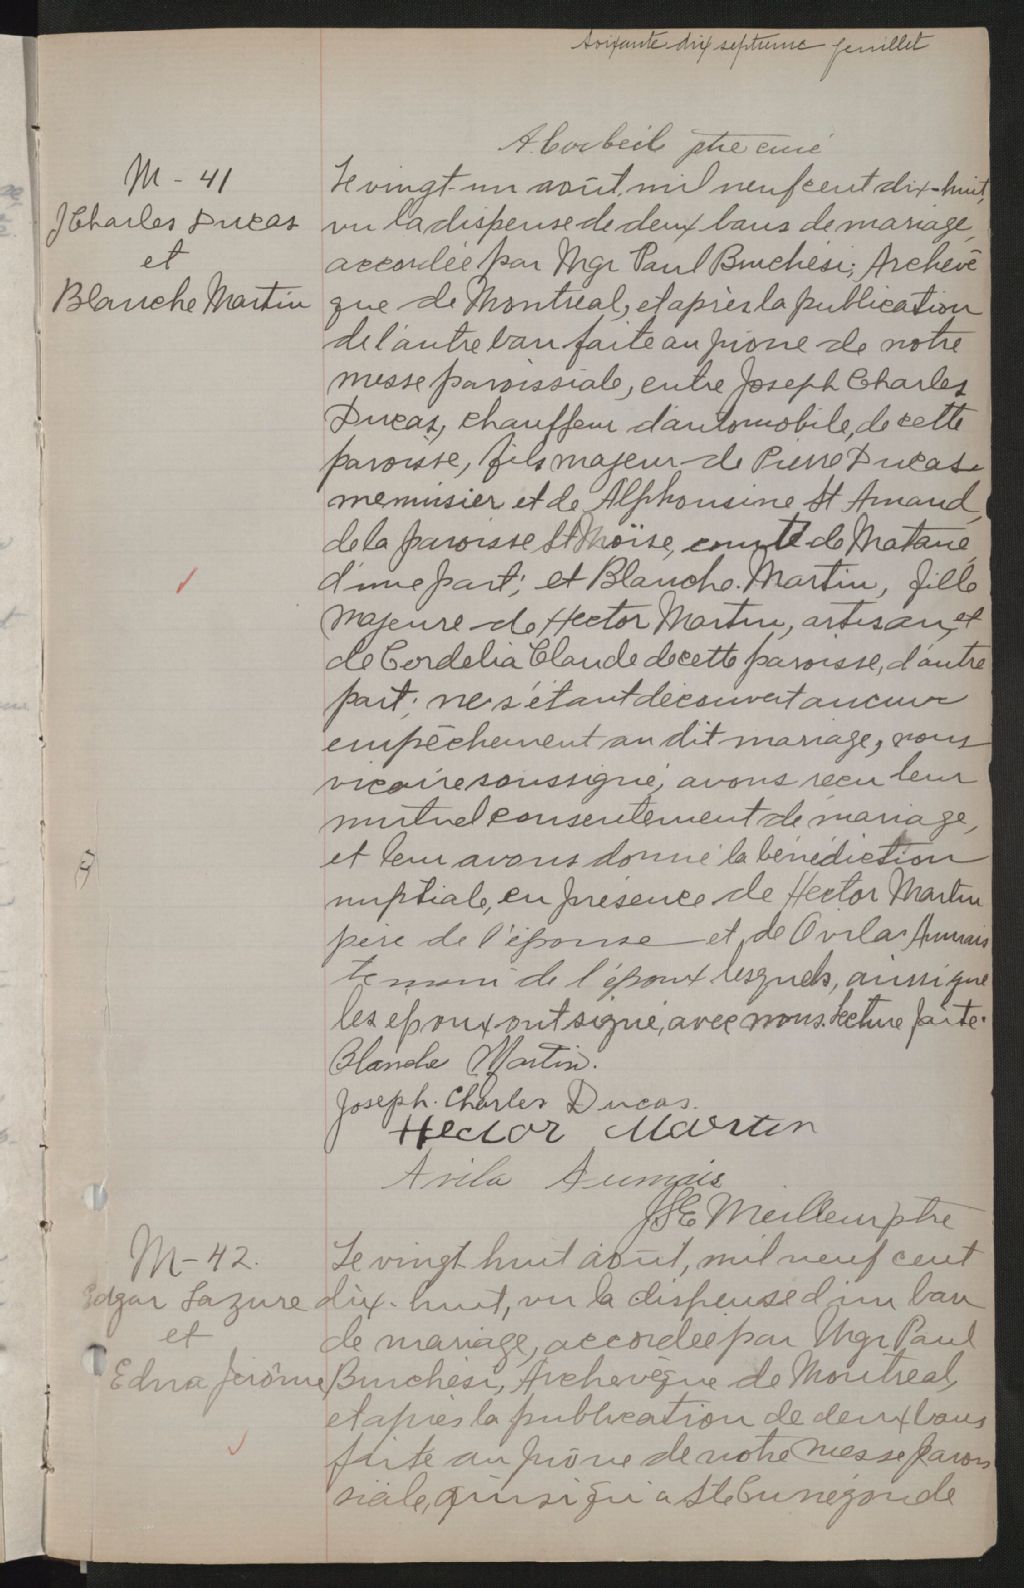 Soixante-dix septieme feuillet
A Corbeil ptre curé
M - 41
J Charles Ducas
et
Blanche Martin
Le vingt-un août, mil neuf cent dix-huit,
vu la dispense de deux bans de mariage,
accordée par Mgr Paul Bruchési, Archevê
que de Montreal, et après la publication
de l'autre ban faite au prône de notre
messe paroissiale, entre Joseph Charles
Ducas, chauffeur d'automobile, de cette
paroisse, fils majeur de Pierre Ducas
menuisier et de Alphonsine St Amand,
de la paroisse St Moïse, comté de Matane,
d'une part; et Blanche Martin, fille
majeure de Hector Martin, artisan, et
de Cordelia Claude de cette paroisse, d'autre
part; ne s'étant découvert aucun
empêchement au dit mariage, nous
vicaire soussigné, avons reçu leur
mutuel consentement de mariage,
et leur avons donné la bénédiction
nuptiale, en présence de Hector Martin
père de l'épouse et de Ovila Aumais
temoin de l'époux lesquels, ainsi que
les epoux ont signé, avec nous. Lecture faite.
Blanche Martin.
Joseph. Charles Ducas.
Hector Martin
Avila Aumais
JSE Meilleur ptre
M - 42.
Edgar Lazure
et
Edna Jerôme
Le vingt huit août, mil neuf cent
dix-huit, vu la dispense d'un ban
de mariage, accordée par Mgr Paul
Bruchési, Archevêque de Montreal,
et après la publication de deux bans
faite au prône de notre messe parois
siale, ainsi qu'a Ste Cunégonde